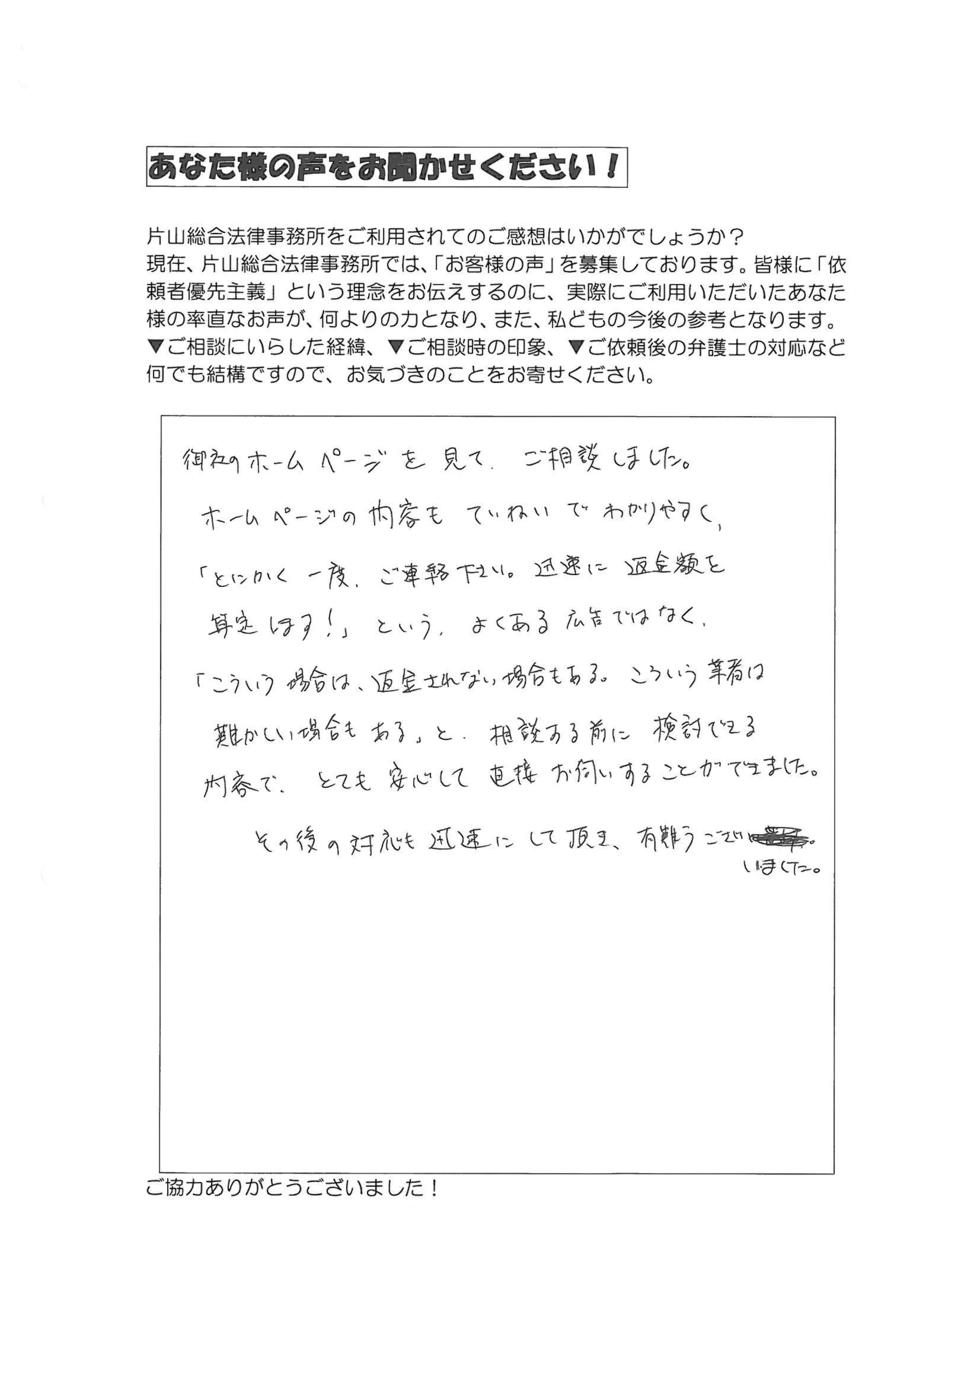 あなた様の声をお聞かせください！
片山総合法律事務所をご利用されてのご感想はいかがでしょうか？
現在、片山総合法律事務所では、「お客様の声」を募集しております。皆様に「依
頼者優先主義」という理念をお伝えするのに、実際にご利用いただいたあなた
様の率直なお声が、何よりの力となり、また、私どもの今後の参考となります。
▼ご相談にいらした経緯、▼ご相談時の印象、▼ご依頼後の弁護士の対応など
何でも結構ですので、お気づきのことをお寄せください。
御社のホームページを見て、ご相談しました。
ホームページの内容もていねいでわかりやすく、
「とにかく一度、ご連絡下さい。迅速に返金額を
算定します！」という、よくある広告ではなく、
「こういう場合は、返金されない場合もある。こういう業者は
難かしい場合もある」と、相談する前に検討できる
内容で、とても安心して直接お伺いすることができました。
その後の対応も迅速にして頂き、有難うござい
いました。
ご協力ありがとうございました！